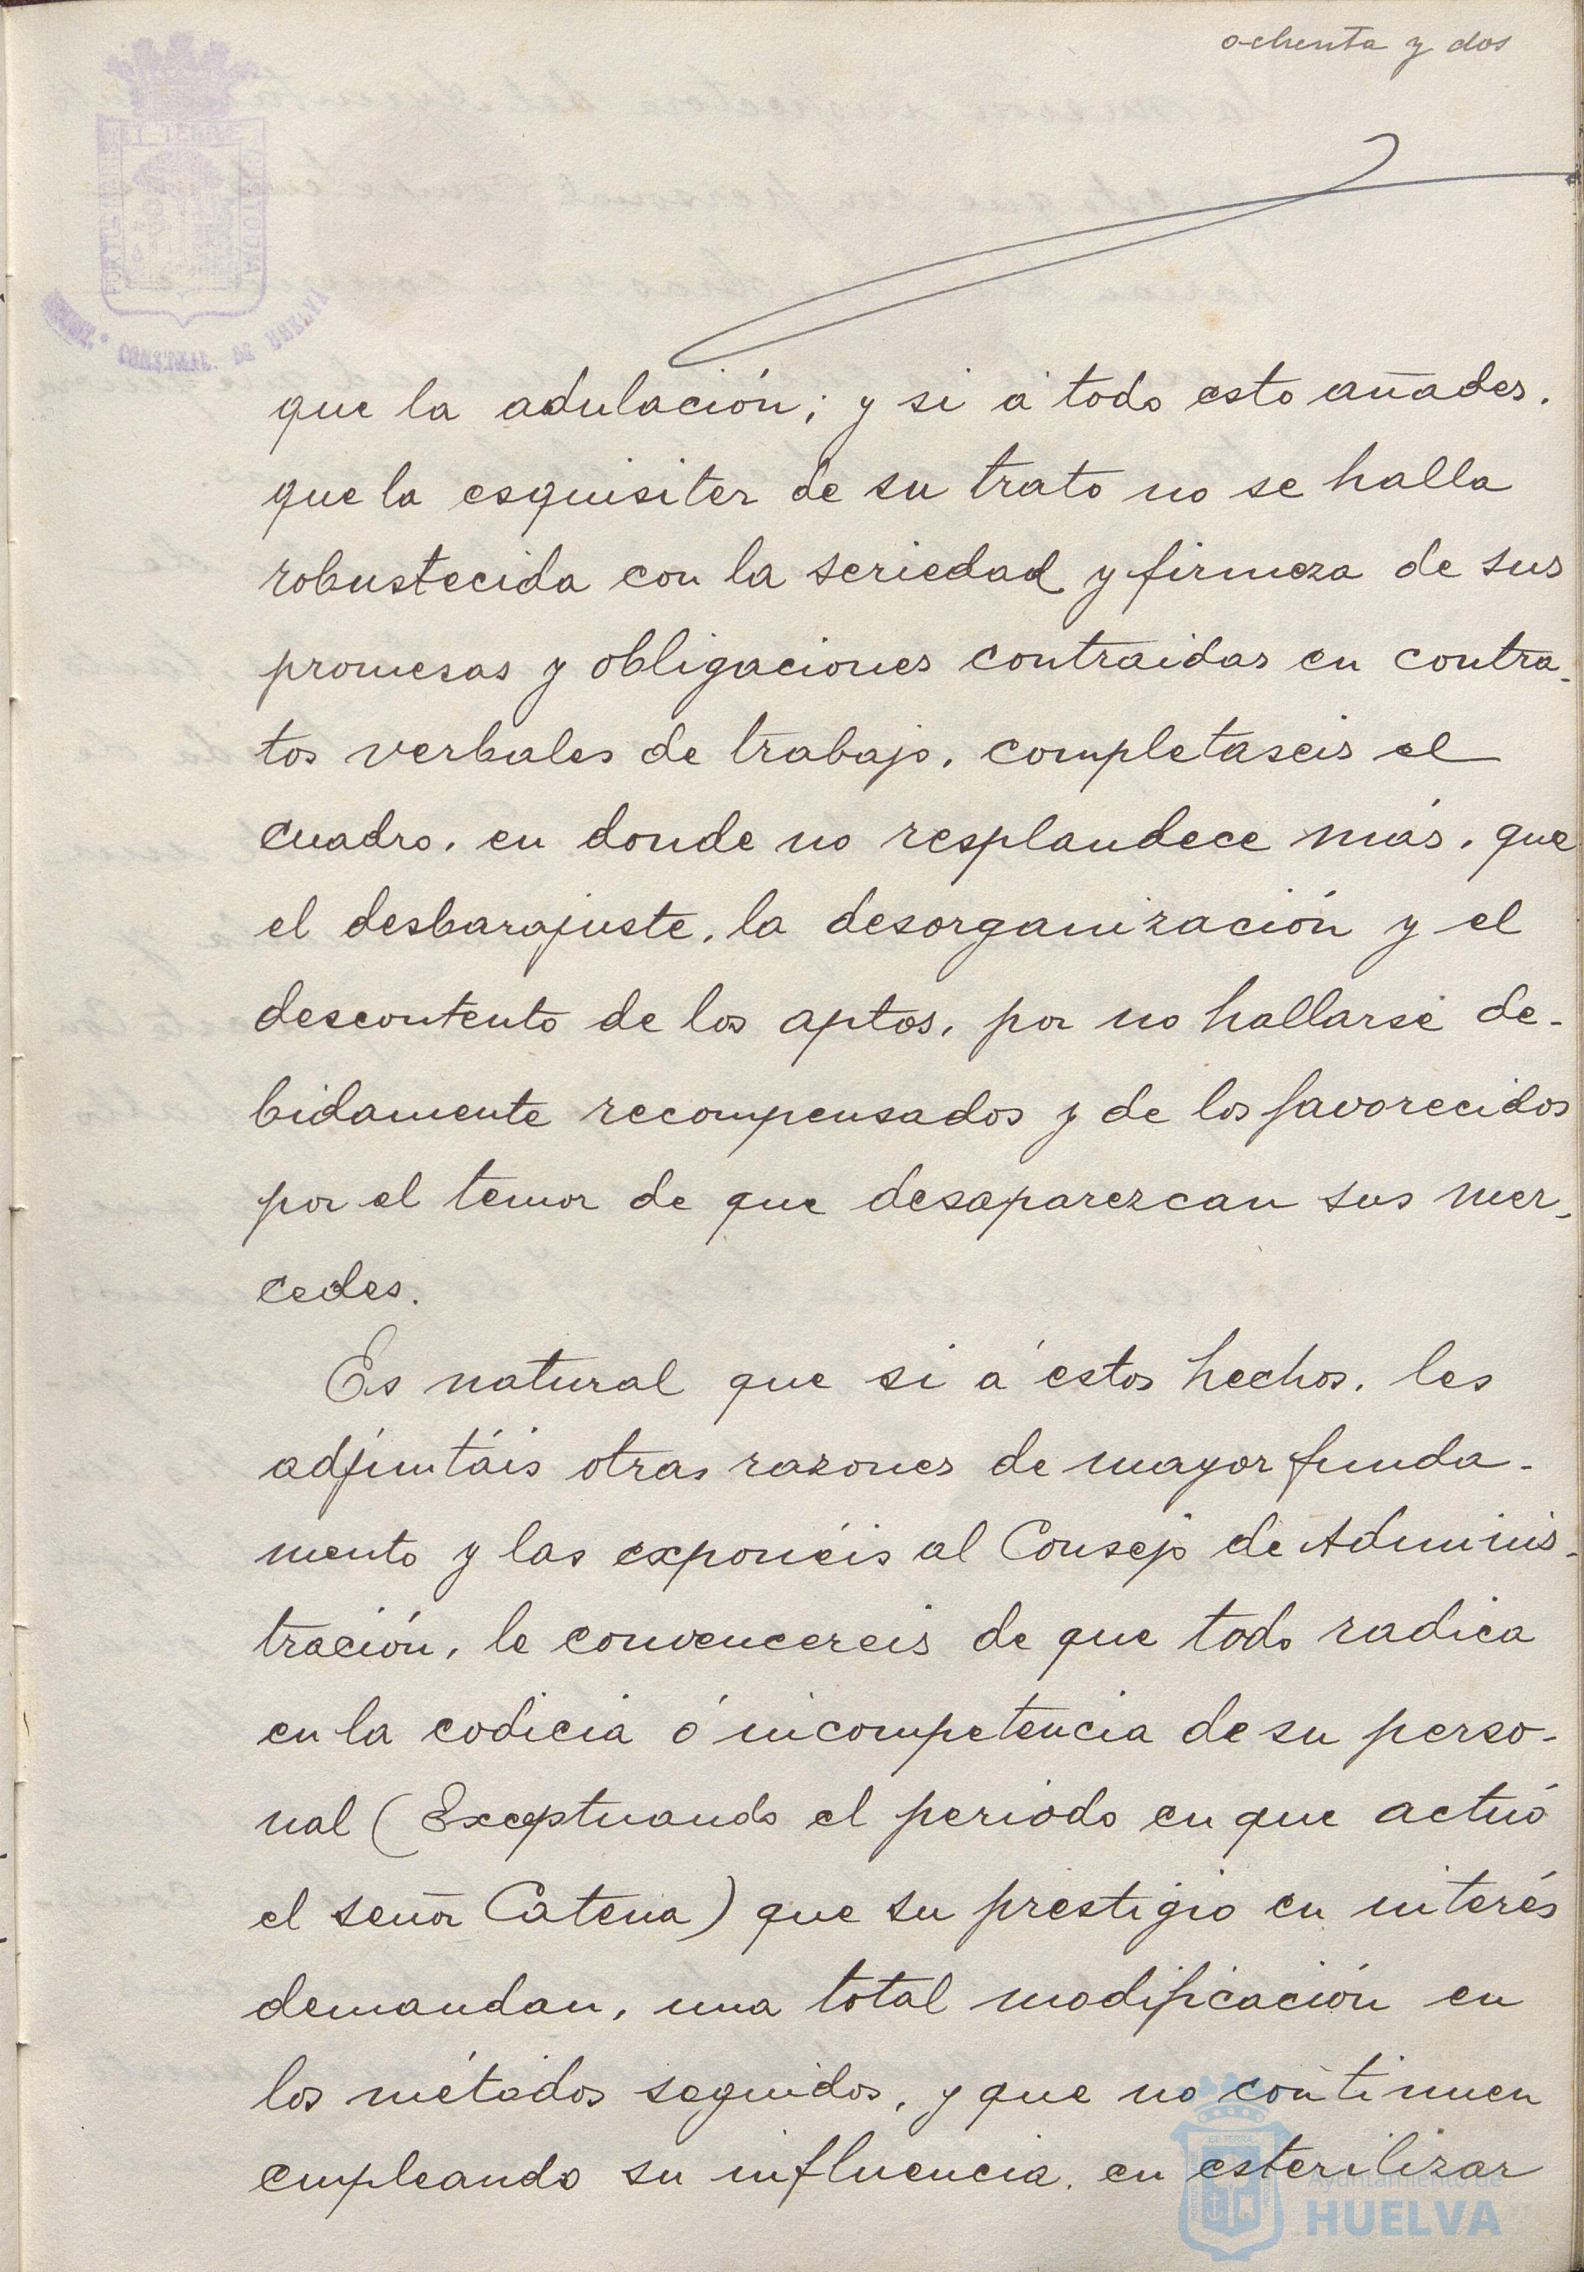 ochenta y dos
PORTUS MARIS ET TERRAE CUSTODIA
CONSTNAL. DE HUELVA
que la adulación; y si á todo esto añades.
que la esquisitez de su trato no se halla
robustecida con la seriedad y firmeza de sus
promesas y obligaciones contraidas en contra-
tos verbales de trabajo, completaseis el
cuadro, en donde no resplandece más, que
el desbarajuste, la desorganización y el
descontento de los aptos, por no hallarse de-
bidamente recompensados y de los favorecidos
por el temor de que desaparezcan sus mer-
cedes.
Es natural que si á estos hechos, les
adjuntáis otras razones de mayor funda-
mento y las exponéis al Consejo de Adminis-
tración, le convencereis de que todo radica
en la codicia ó incompetencia de su perso-
nal (Exceptuando el periodo en que actuó
el señor Catena) que su prestigio en interés
demandan, una total modificación en
los métodos seguidos, y que no continuen
empleando su influencia, en esterilizar
Ayuntamiento de
HUELVA